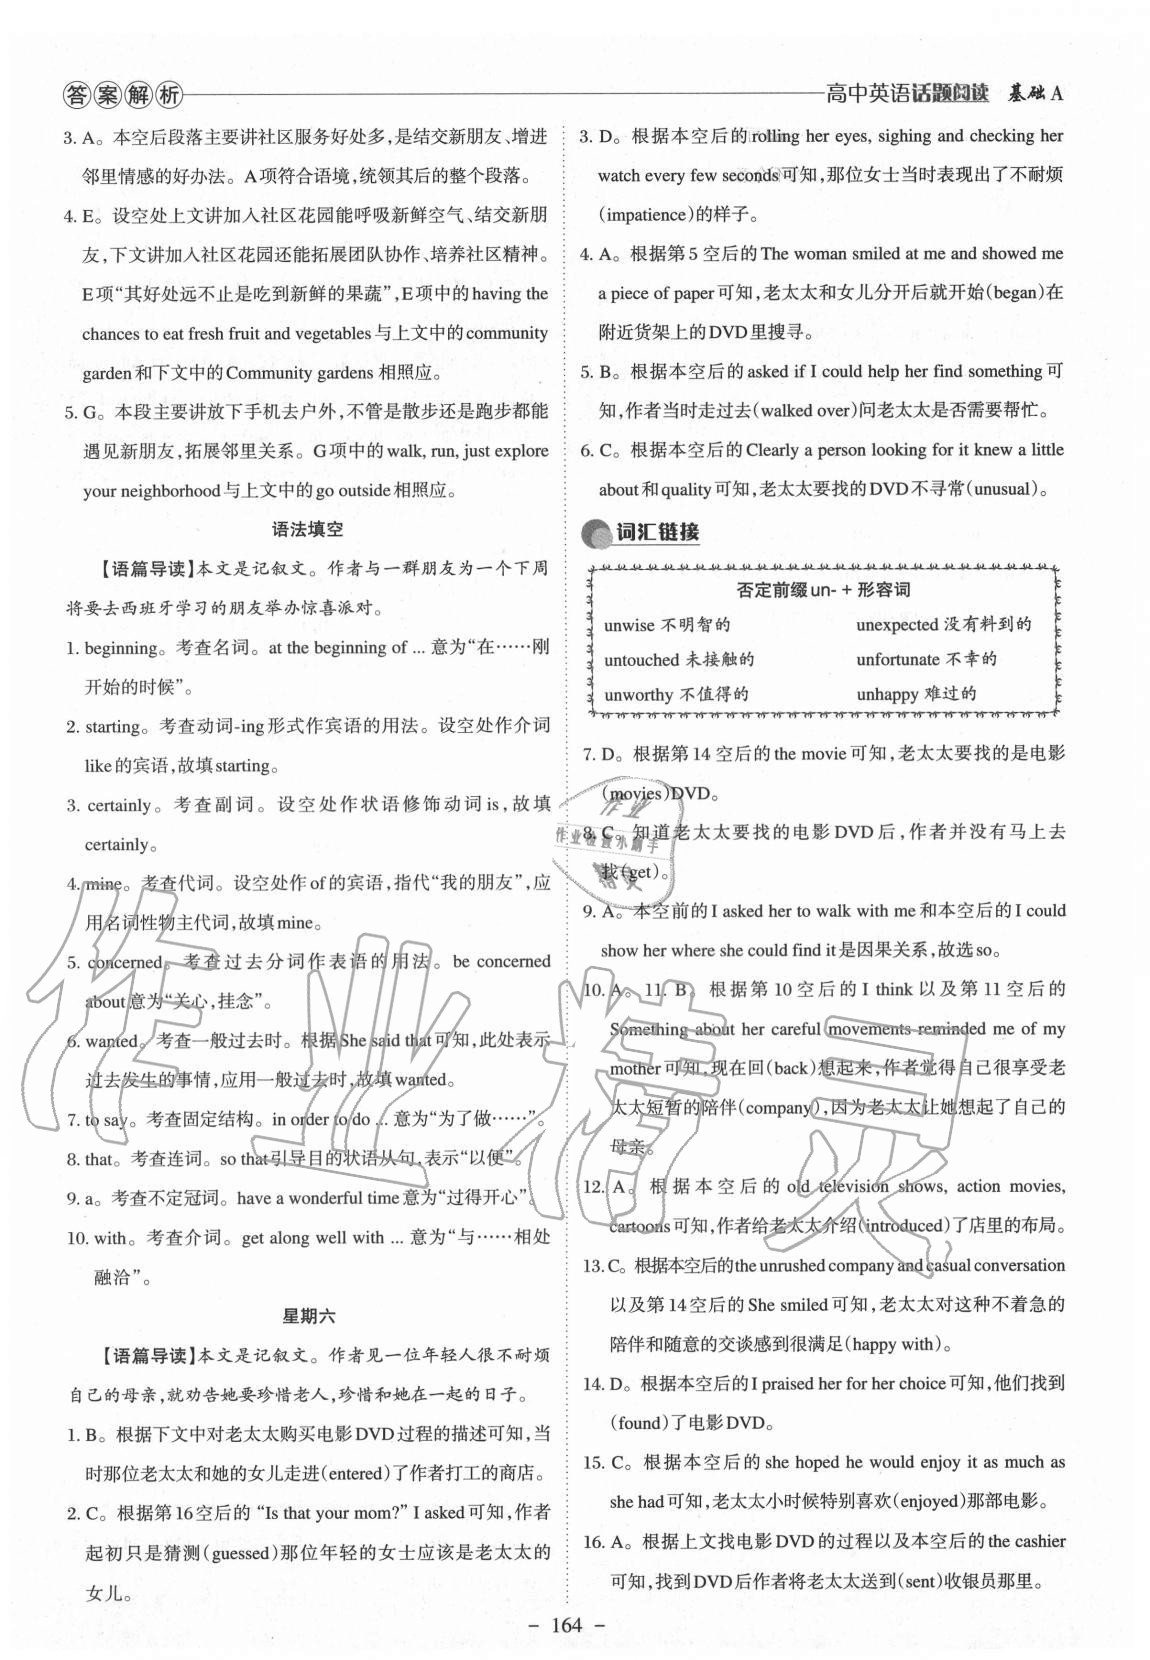 答案解析
高中英语话题阅读 基础A
3. A。本空后段落主要讲社区服务好处多,是结交新朋友、增进
邻里情感的好办法。A项符合语境,统领其后的整个段落。
4. E。设空处上文讲加入社区花园能呼吸新鲜空气、结交新朋
友,下文讲加入社区花园还能拓展团队协作、培养社区精神。
E项“其好处远不止是吃到新鲜的果蔬”,E项中的having the
chances to eat fresh fruit and vegetables与上文中的community
garden和下文中的Community gardens 相照应。
5. G。本段主要讲放下手机去户外,不管是散步还是跑步都能
遇见新朋友,拓展邻里关系。G项中的walk, run, just explore
your neighborhood与上文中的go outside相照应。
语法填空
【语篇导读】本文是记叙文。作者与一群朋友为一个下周
将要去西班牙学习的朋友举办惊喜派对。
1. beginning。考查名词。at the beginning of ... 意为“在……刚
开始的时候”。
2. starting。考查动词-ing形式作宾语的用法。设空处作介词
like的宾语,故填starting。
3. certainly。考查副词。设空处作状语修饰动词is,故填
certainly。
4. mine。考查代词。设空处作of的宾语,指代“我的朋友”,应
用名词性物主代词,故填mine。
5. concerned。考查过去分词作表语的用法。be concerned
about意为“关心,挂念”。
6. wanted。考查一般过去时。根据She said that可知,此处表示
过去发生的事情,应用一般过去时,故填wanted。
7. to say。考查固定结构。in order to do ... 意为“为了做……”。
8. that。考查连词。so that引导目的状语从句,表示“以便”。
9. a。考查不定冠词。have a wonderful time意为“过得开心”。
10. with。考查介词。get along well with ... 意为“与……相处
融洽”。
星期六
【语篇导读】本文是记叙文。作者见一位年轻人很不耐烦
自己的母亲,就劝告她要珍惜老人,珍惜和她在一起的日子。
1. B。根据下文中对老太太购买电影DVD过程的描述可知,当
时那位老太太和她的女儿走进(entered)了作者打工的商店。
2. C。根据第16空后的 “Is that your mom?” I asked可知,作者
起初只是猜测(guessed)那位年轻的女士应该是老太太的
女儿。
3. D。根据本空后的rolling her eyes, sighing and checking her
watch every few seconds可知,那位女士当时表现出了不耐烦
(impatience)的样子。
4. A。根据第5空后的The woman smiled at me and showed me
a piece of paper可知,老太太和女儿分开后就开始(began)在
附近货架上的DVD里搜寻。
5. B。根据本空后的asked if I could help her find something可
知,作者当时走过去(walked over)问老太太是否需要帮忙。
6. C。根据本空后的Clearly a person looking for it knew a little
about和quality可知,老太太要找的DVD不寻常(unusual)。
词汇链接
否定前缀un- + 形容词
unwise 不明智的 unexpected 没有料到的
untouched 未接触的 unfortunate 不幸的
unworthy 不值得的 unhappy 难过的
7. D。根据第14空后的the movie可知,老太太要找的是电影
(movies)DVD。
8. C。知道老太太要找的电影DVD后,作者并没有马上去
找(get)。
9. A。本空前的I asked her to walk with me和本空后的I could
show her where she could find it是因果关系,故选so。
10. A。11. B。根据第10空后的I think以及第11空后的
Something about her careful movements reminded me of my
mother可知,现在回(back)想起来,作者觉得自己很享受老
太太短暂的陪伴(company),因为老太太让她想起了自己的
母亲。
12. A。根据本空后的old television shows, action movies,
cartoons可知,作者给老太太介绍(introduced)了店里的布局。
13. C。根据本空后的the unrushed company and casual conversation
以及第14空后的She smiled可知,老太太对这种不着急的
陪伴和随意的交谈感到很满足(happy with)。
14. D。根据本空后的I praised her for her choice可知,他们找到
(found)了电影DVD。
15. C。根据本空后的she hoped he would enjoy it as much as
she had可知,老太太小时候特别喜欢(enjoyed)那部电影。
16. A。根据上文找电影DVD的过程以及本空后的the cashier
可知,找到DVD后作者将老太太送到(sent)收银员那里。
- 164 -
作业精灵
作业
作业检查小助手
精灵